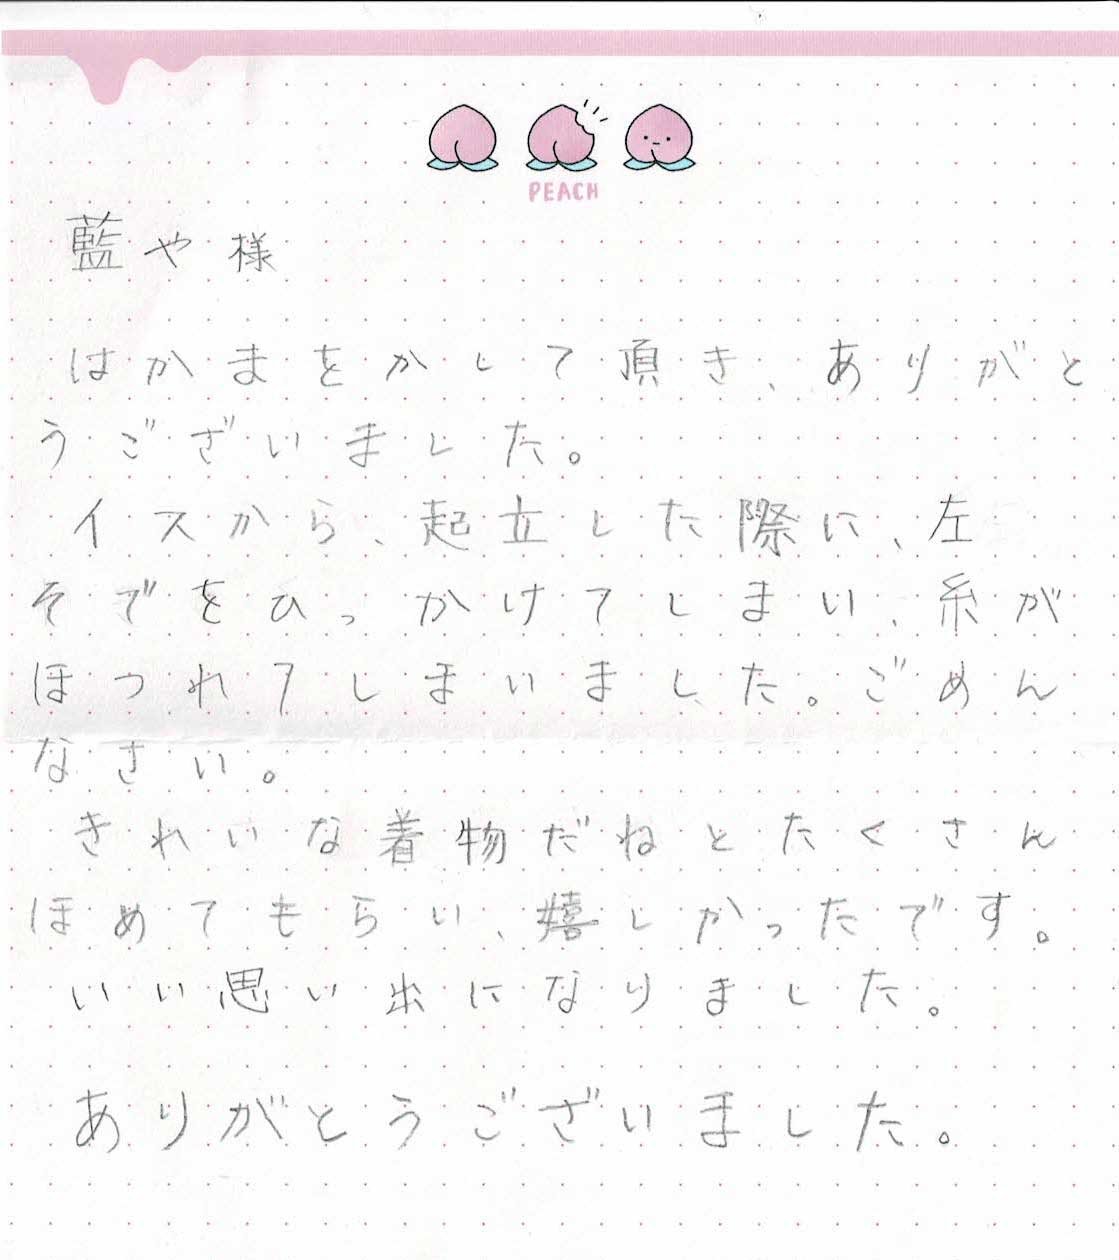 PEACH
藍や様
はかまをかして頂き、ありがと
うございました。
イスから、起立した際に、左
そでをひっかけてしまい、糸が
ほつれてしまいました。ごめん
なさい。
きれいな着物だねとたくさん
ほめてもらい、嬉しかったです。
いい思い出になりました。
ありがとうございました。